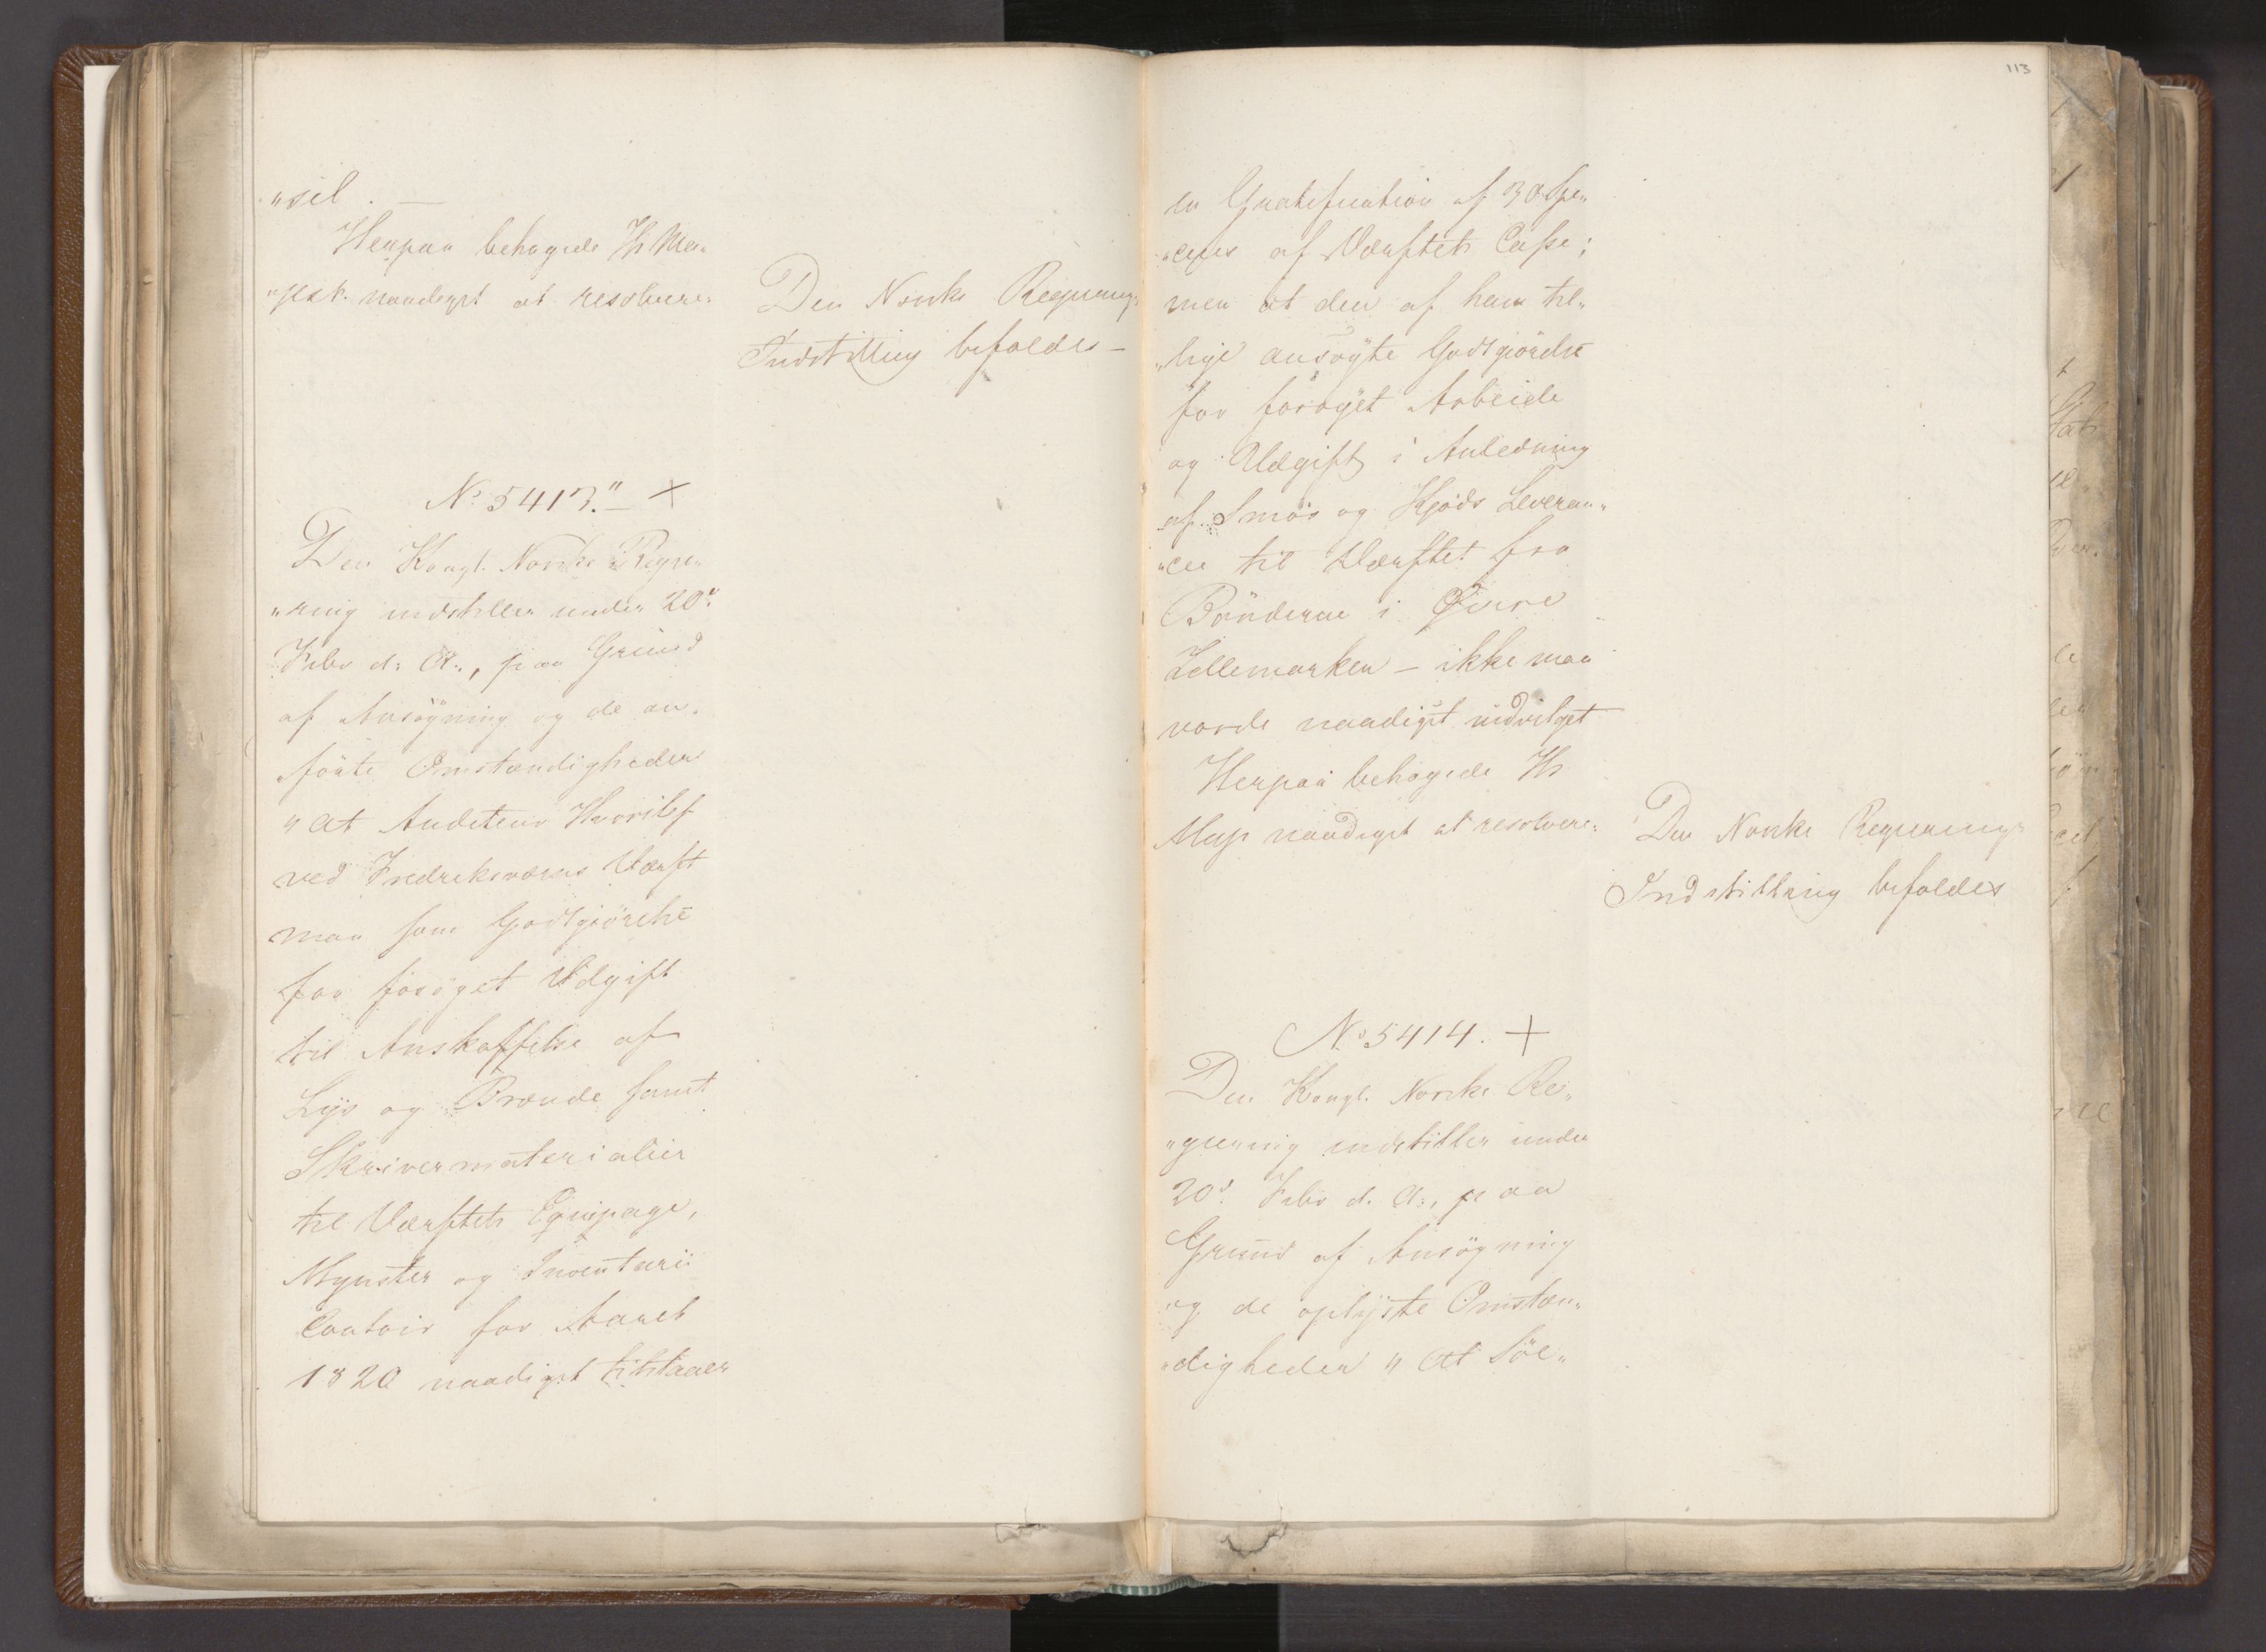 "sil. —
Herpaa behagede Hs Ma„
"jest. naadigst at resolvere:
Den Norske Regjerings
Indstilling bifaldes —
No 5413." — +
Den Kongl. Norske Regje„
"ring indstiller under 20de
Febr d: A:, paa Grund
af Ansøgning og de an„
førte Omstændigheder
"at Auditeur Hvorslef
ved Fredriksværns Værft
maa som Godtgjörelse
for forøget Udgift
til Anskaffelse af
Lÿs og Brænde samt
Skrivermaterialier
til Værftets Equipage,
Mynster og Inventarii
Contoir for Aaret
1820 naadigst tilstaaes
113
en Gratification af 30 Spe„
"cies af Værftets Casse;
men at den af ham til„
"lige ansøgte Godtgiörelse
for forøget Arbeide
og Udgift i Anledning
af Smör og Kjøds Leveran„
"cer til Værftet fra
Bönderne i Øvre
Tellemarken — ikke maa
vorde naadigst indvilget
Herpaa behagede Hs
Maj: naadigst at resolvere:
Den Norske Regjerings
Indstilling bifaldes
No 5414. +
Den Kongl. Norske Re„
"gjering indstiller under
20de Febr d. A:, paa
Grund af Ansøgning
og de oplyste Omstæn„
"digheder "at Söe„